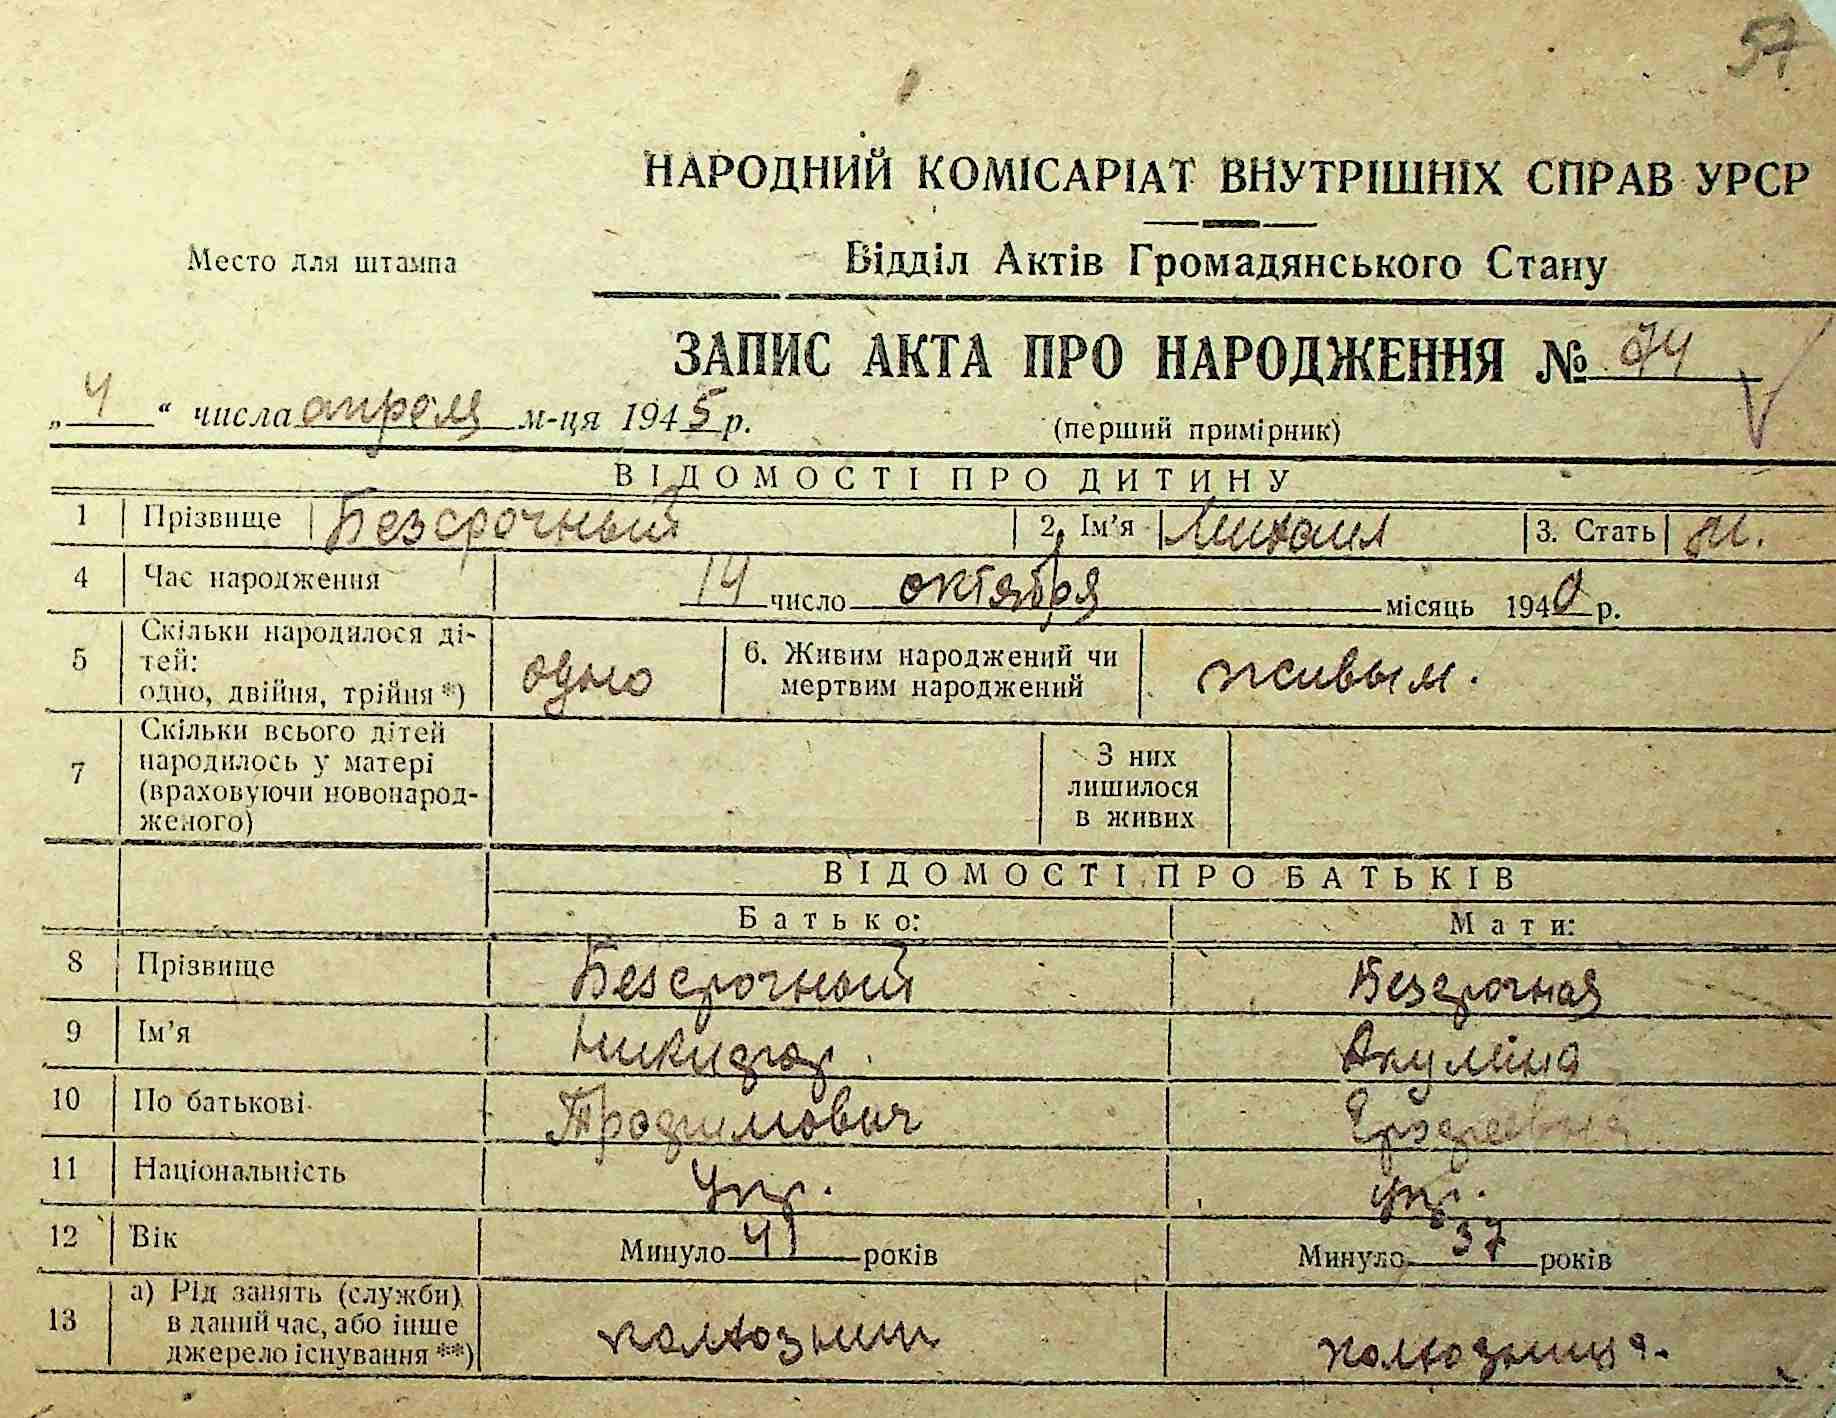 57
НАРОДНИЙ КОМІСАРІАТ ВНУТРІШНІХ СПРАВ УРСР
Место для штампа
Відділ Актів Громадянського Стану
ЗАПИС АКТА ПРО НАРОДЖЕННЯ №
„4“ числа апреля м-ця 1945 р.
(перший примірник)
ВІДОМОСТІ ПРО ДИТИНУ
1 Прізвище Безсрочный 2. Ім'я Михаил 3. Стать м.
4 Час народження 14 число октября місяць 1940 р.
5 Скільки народилося ді-
тей:
одно, двійня, трійня *) одно 6. Живим народжений чи
мертвим народжений живым.
7 Скільки всього дітей
народилось у матері
(враховуючи новонарод-
женого)
З них
лишилося
в живих
ВІДОМОСТІ ПРО БАТЬКІВ
Батько: Мати:
8 Прізвище Безсрочный Безсрочная
9 Ім'я Никифор. Акулина
10 По батькові Трофимович
11 Національність укр. укр.
12 Вік Минуло 41 років Минуло 37 років
13 а) Рід занять (служби)
в даний час, або інше
джерело існування **) колхозник колхозница.